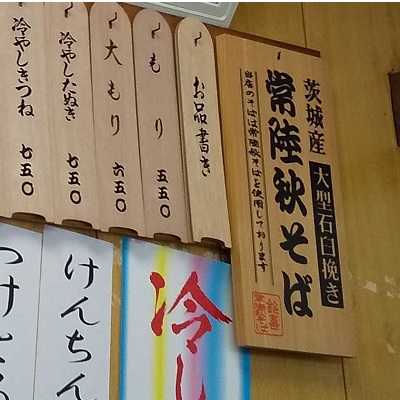 茨城産
大型石臼挽き
常陸秋そば
当店のそばは常陸秋そばを使用しております
お品書き
もり 五五〇
大もり 六五〇
冷やしたぬき 七五〇
冷やしきつね 七五〇
冷し
けんちん
つけ